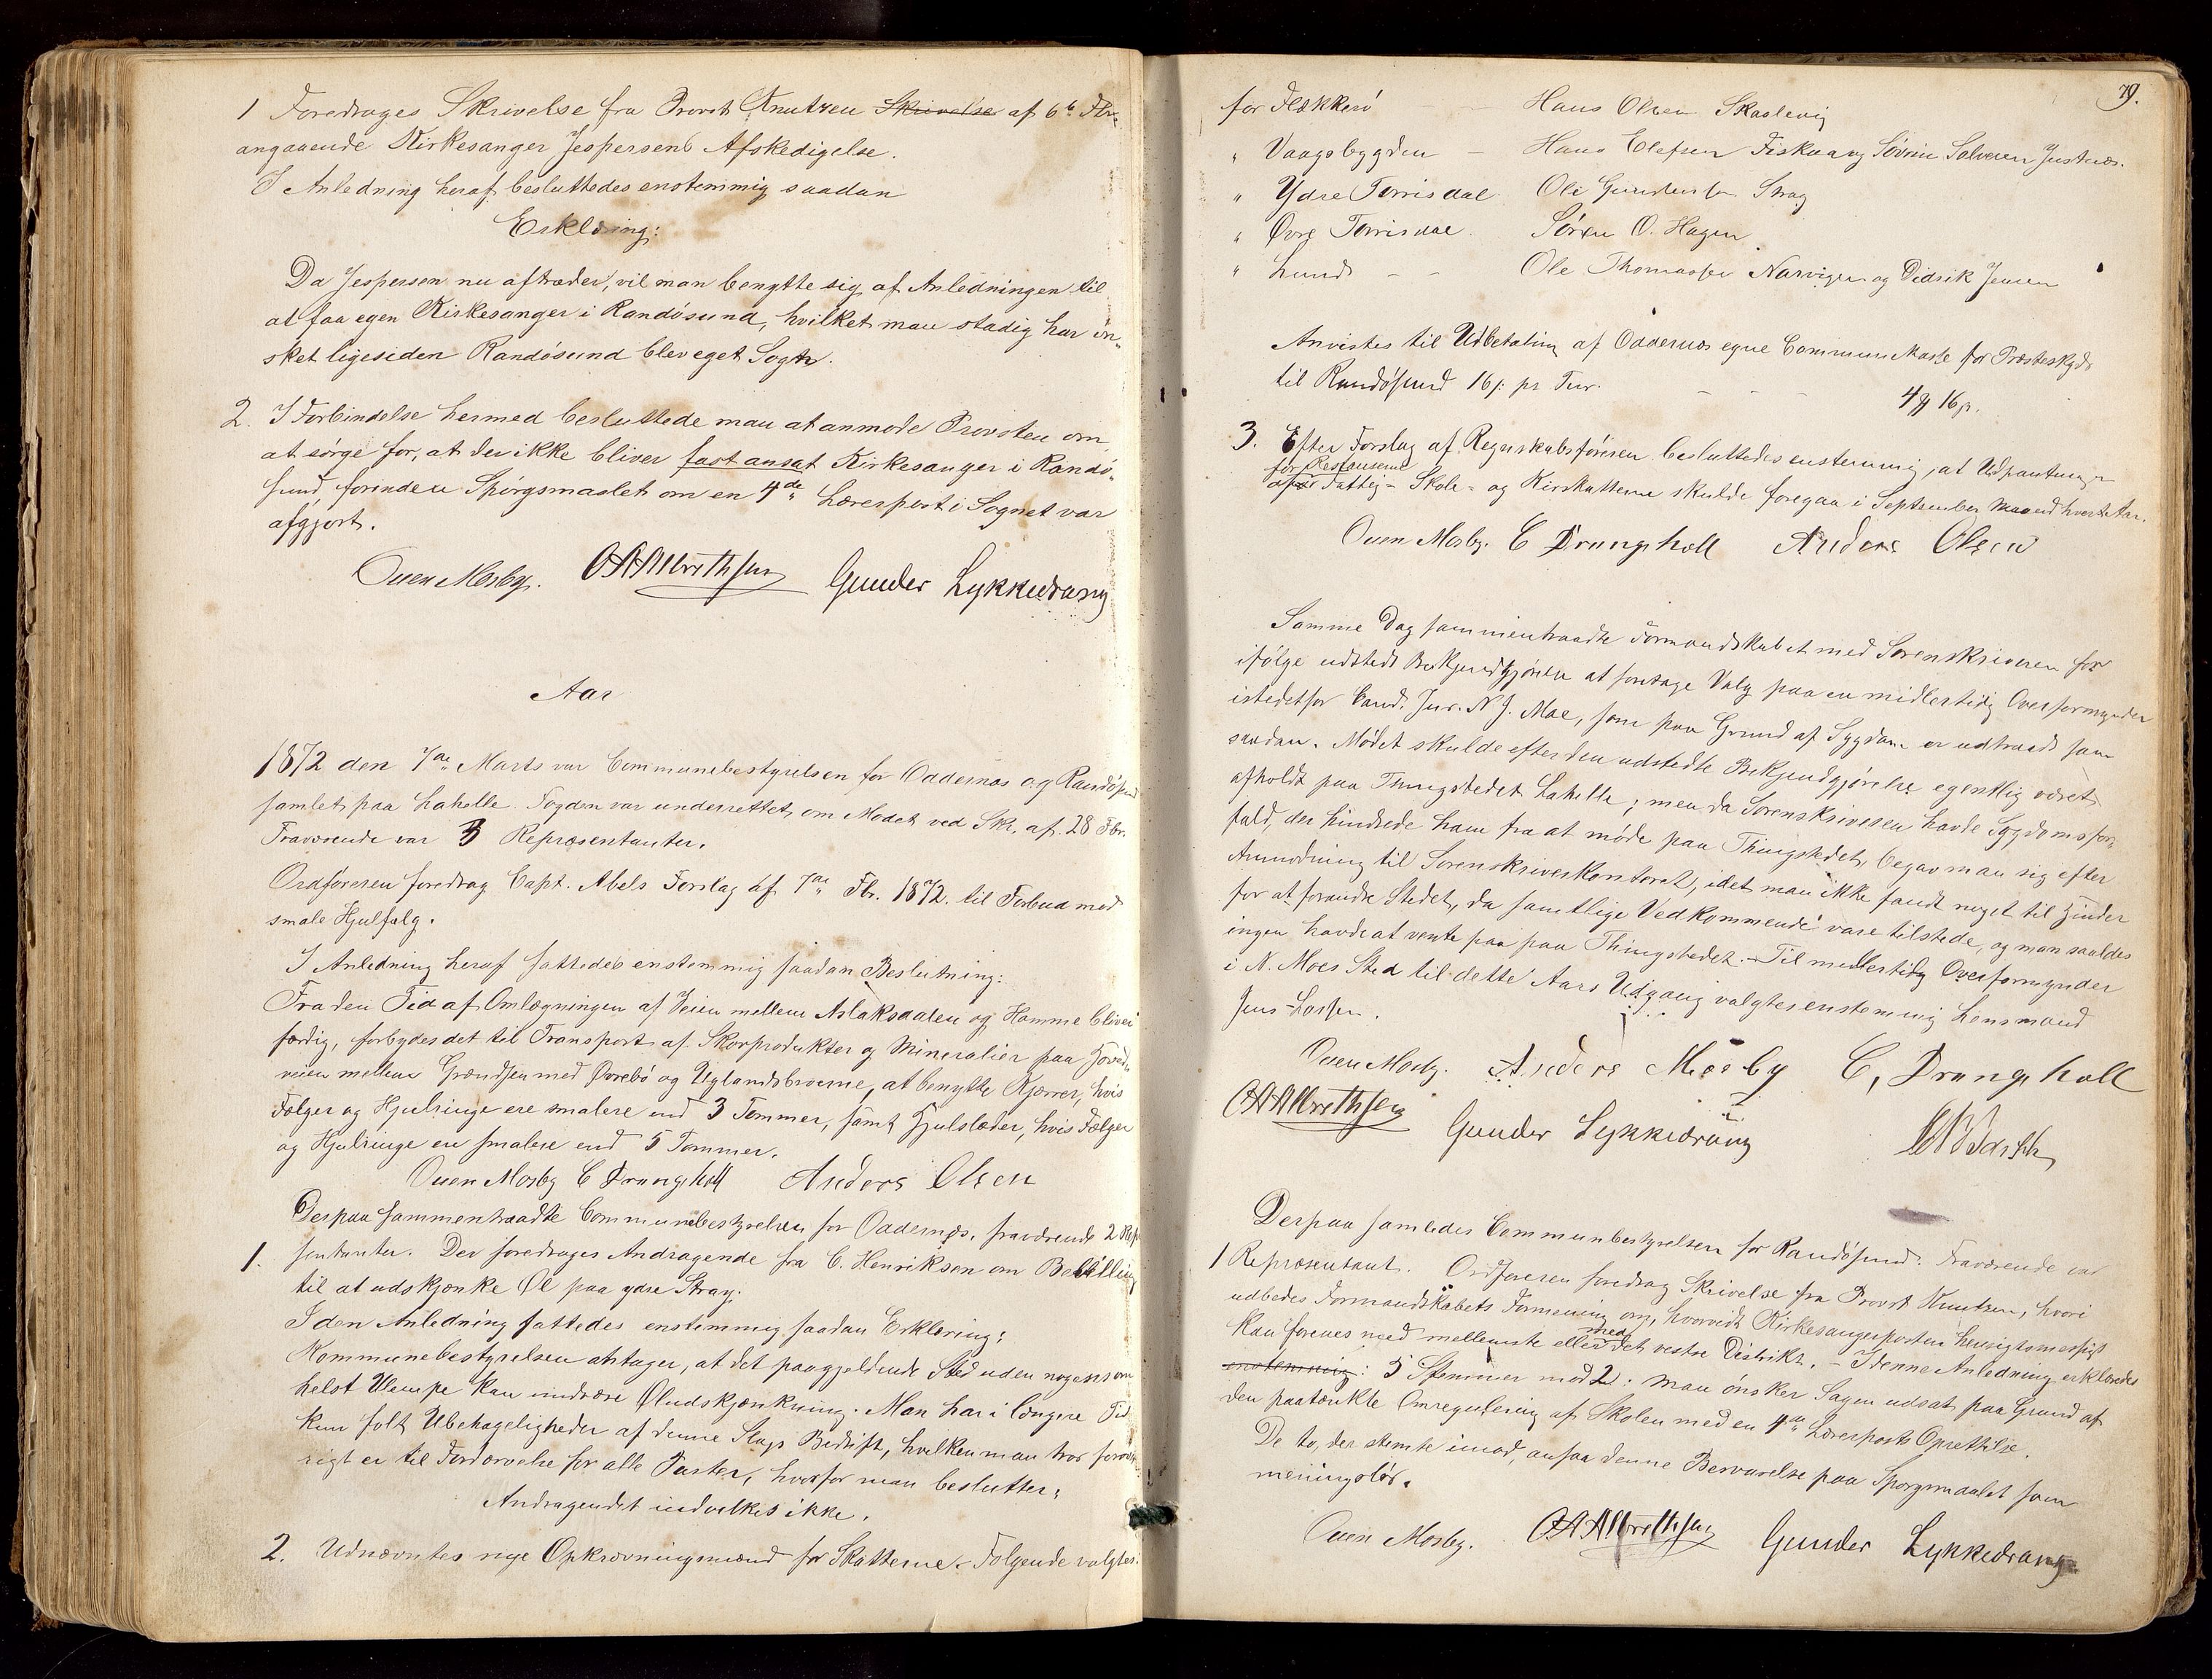 1 Foredroges Skrivelse fra Provst Knutzen Skrivelse af 6te Fbr.
angaaende Kirkesanger Jespersens Afskedigelse.
I Anledning heraf besluttedes enstemmig saadan
Erklæring:
Da Jespersen nu aftræder, vil man benytte sig af Anledningen til
at faa egen Kirkesanger i Randøsund, hvilket man stadig har ön„
sket ligesiden Randøsund blev eget Sogn.
2. I Forbindelse hermed besluttede man at anmode Provsten om
at sörge for, at der ikke bliver fast ansat Kirkesanger i Randö„
sund, forinden Spörgsmaalet om en 4de Lærerpost i Sognet var
afgjort.
Ouen Mosby. OAAlbrethsen Gunder Lykkedrang
Aar
1872 den 7de Marts var Communebestyrelsen for Oddernæs og Randösund
samlet paa Lahelle. Fogden var underrettet om Mödet ved Skr. af 28 Fbr.
Fraværende var 3 Repræsentanter.
Ordföreren foredrog Capt. Abels Forslag af 7de Fbr. 1872. til Forbud mod
smale Hjulfælg.
I Anledning heraf fattedes enstemmig saadan Beslutning:
Fra den Tid af Omlægningen af Veien mellem Aslaksdalen og Homme bliver
færdig, forbydes det til Transport af Skovprodukter og Mineralier paa Hoved-
veien mellem Grændsen med Øvrebö og Uglandsbroerne, at benytte Kjærrer, hvis
Fælger og Hjulringe ere smalere end 3 Tommer, samt Hjulslæder, hvis Fælger
og Hjulringe ere smalere end 5 Tommer.
Ouen Mosby C Drangsholt Anders Olsen
Derpaa sammentraadte Communebestyrelsen for Oddernæs, fraværende 2 Repr
1. sentanter. Der foredroges Andragende fra C. Henriksen om Bevilling
til at udskjænke Øl paa ydre Stray.
I den Anledning fattedes enstemmig saadan Erklæring:
Kommunebestyrelsen antager, at det paagjeldende Sted uden nogensom
helst Ulempe kan undvære Øludskjænkning. Man har i længere Tid
kun følt Ubehageligheder af denne Slags Bedrift, hvilken man tror forøv
rigt er til Fordærvelse for alle Parter, hvorfor man beslutter:
Andragendet indvilkes ikke.
2. Udnævntes nye Opkrævningsmænd for Skatterne. Følgende valgtes:
79.
for Flekkerö – Hans Olsen Skaalevig
" Vaagsbygden – Hans Elefsen Fiskaa og Sövrin Salvesen Justnæs.
" Ydre Torrisdal Ole Gundersen Stray
" Øvre Torrisdal Sören O. Hagen
" Lund – – Ole Thomassen Narvigen og Didrik Jensen
Anvistes til Udbetaling af Oddernæs egne Commune Kasse for Præsteskyds
til Randösund 16 s. pr Tur. – – – 4 16 s.
3. Efter Forslag af Regnskabsføreren besluttedes enstemmig, at Udpantninger
for Restanserne
af Fattig- Skole- og Kirskatterne skulde foregaa i September Maaned hvert Aar.
Ouen Mosby. C Drangsholt Anders Olsen
Samme Dag sammentraadte Formandskabet med Sorenskriveren for
ifölge udstedt Bekjendtgjörelse at foretage Valg paa en midlertidig Overformynder
istedetfor Cand. Jur. N J. Moe, som paa Grund af Sygdom er udtraadt som
saadan. Mödet skulde efter den udstedte Bekjendtgjörelse egentlig været
afholdt paa Thingstedet Lahelle; men da Sorenskriveren havde Sygdomsfor„
fald, der hindrede ham fra at möde paa Thingstedet, begav man sig efter
Anmodning til Sorenskriverkontoret, idet man ikke fandt noget til Hinder
for at forandre Stedet, da samtlige Vedkommende vare tilstede, og man saaledes
ingen havde at vente paa paa Thingstedet. Til midlertidig Overformynder
i N. Moes Sted til dette Aars Udgang valgtes enstemmig Lensmand
Jens Lassen.
Ouen Mosby. Anders Mosby C, Drangsholt
OAAlbrethsen Gunder Lykkedrang
Derpaa samledes Communbestyrelsen for Randösund. Fraværende var
1 Repræsentant. Ordföreren foredrog Skrivelse fra Provst Knutzen, hvori
udbedes Formandskabets Formening om, hvorvidt Kirkesangerposten hensigtsmessigst
kan forenes med mellemste eller med det vestre Distrikt. – I denne Anledning erklæredes
enstemmig: 5 Stemmer mod 2: man önsker Sagen udsat paa Grund af
den paatænkte Omregulering af Skolen med en 4de Lærerposts Oprettelse.
De to, der stemte imod, ansaa denne Besvarelse paa Spörgsmaalet som
meningslös.
Ouen Mosby. OAAlbrethsen Gunder Lykkedrang